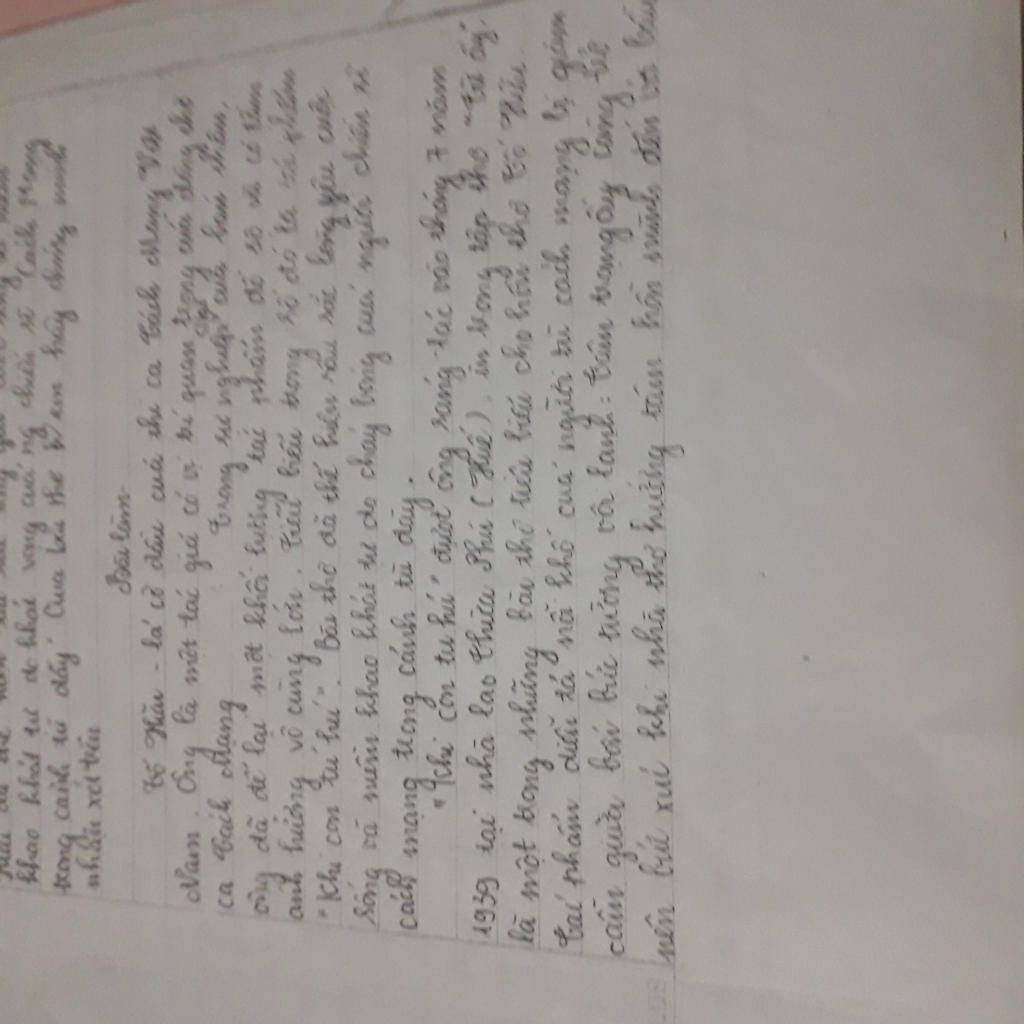 khao khát tự do khát vọng của ng chiến sĩ Cách Mạng
trong cảnh tù đầy" Qua bài thơ trên hãy chứng minh
nhận xét trên
Bài làm
Tố Hữu - lá cờ đầu của thi ca Cách Mạng Việt
Nam. Ông là một tác giả có vị trí quan trọng của dòng thơ
ca Cách Mạng Trong sự nghiệp của bản thân,
ông để để lại một khối lượng tác phẩm đồ sộ và có tầm
ảnh hưởng vô cùng lớn. Tiêu biểu trong số đó là tác phẩm
"Khi con tu hú". Bài thơ đã thể hiện sâu sắc lòng yêu cuộc
sống và niềm khao khát tự do cháy bỏng của người chiến sĩ
cách mạng trong cảnh tù đày.
"Khi con tu hú" được ông sáng tác vào tháng 7 năm
1939 tại nhà lao Thừa Phủ (Huế). in trong tập thơ "Từ ấy".
là một trong những bài thơ tiêu biểu cho hồn thơ Tố Hữu.
Tác phẩm diễn tả nỗi khổ của người tù cách mạng bị giam
cầm giữa bốn bức tường vôi lạnh: trong cùng
nên bức xúc khi nhà thơ hướng tâm hồn mình đến với bầu